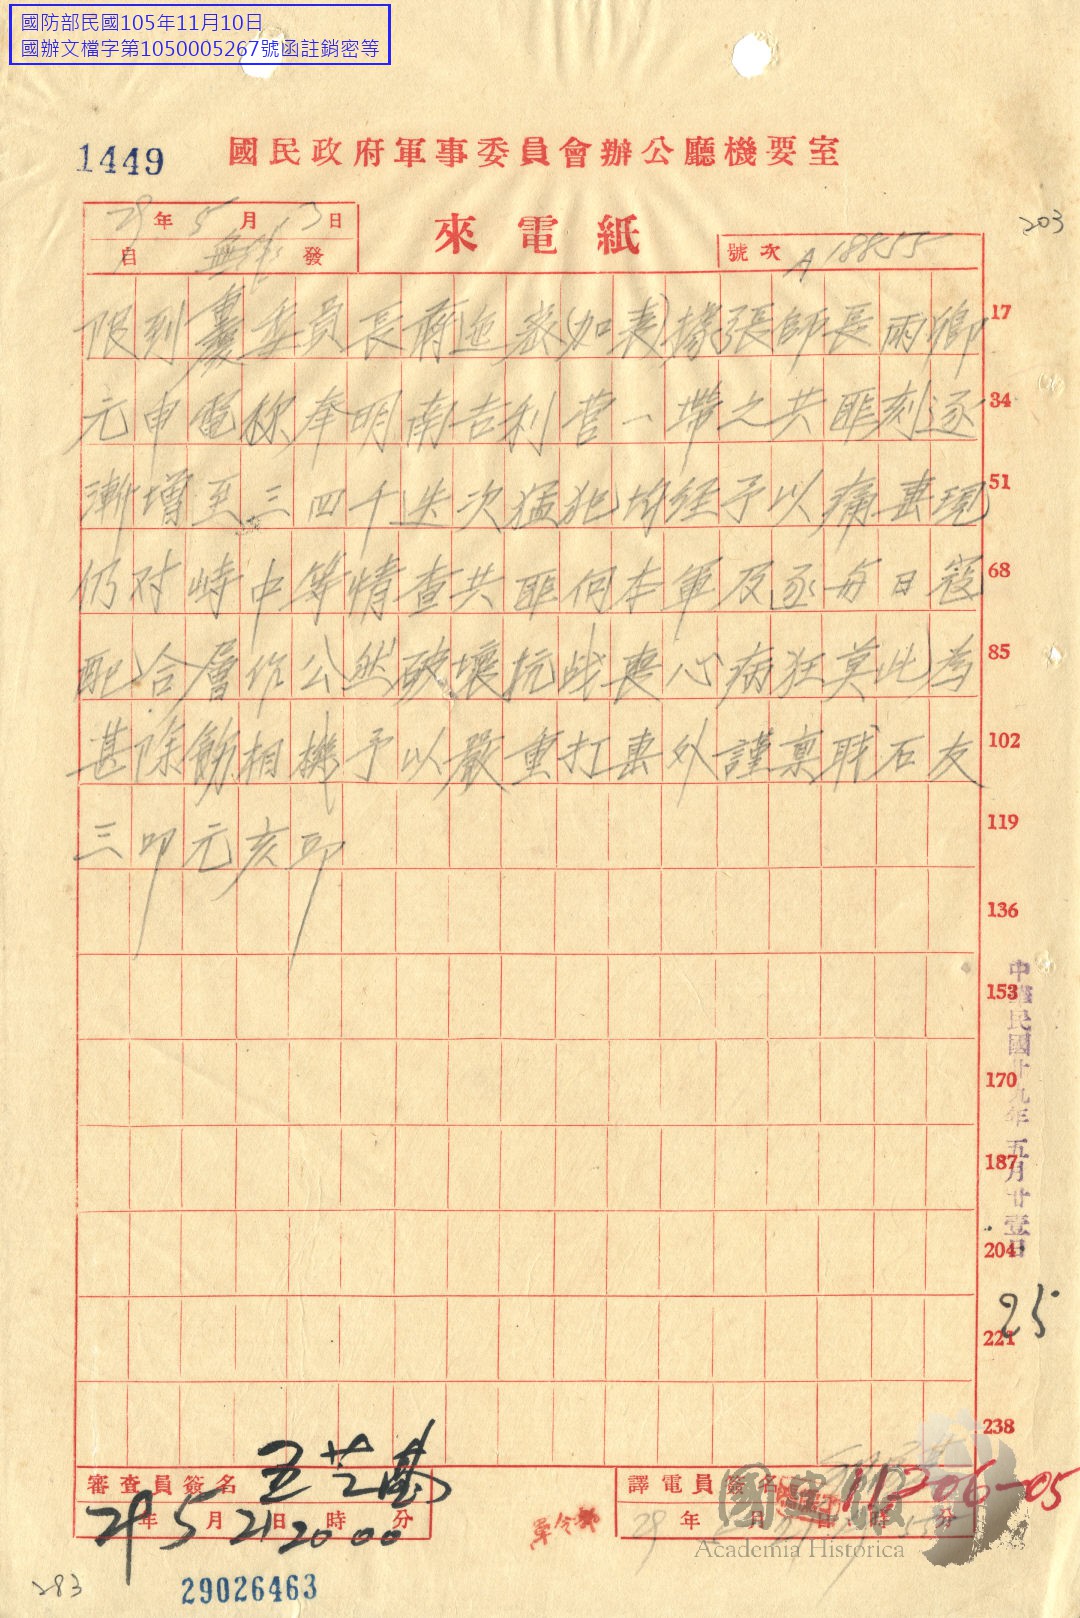 國防部民國105年11月10日
國辦文檔字第1050005267號函註銷密等
1449
國民政府軍事委員會辦公廳機要室
203
29年5月13日
自無線發
來電紙
號次 A 18855
限到重慶委員長蔣迤密(加表)據張師長雨卿 17
元申電称奉明南吉利营一帶之共匪刻逐 34
漸增至三四千迭次猛犯均经予以痛击現 51
仍对峙中等情查共匪伺本軍及逐每日寇 68
配合層作公然破壞抗战喪心病狂莫此為 85
甚除飭相機予以嚴重打击外謹禀職石友 102
三叩元亥印 119
136
153
170
187
204
221
238
中華民國廿九年五月廿壹日
25
審查員簽名 王芝
29年5月21日20時00分
軍令部
譯電員簽名
29年 月 日 時 分
11206-05
國史館
Academia Historica
283
29026463